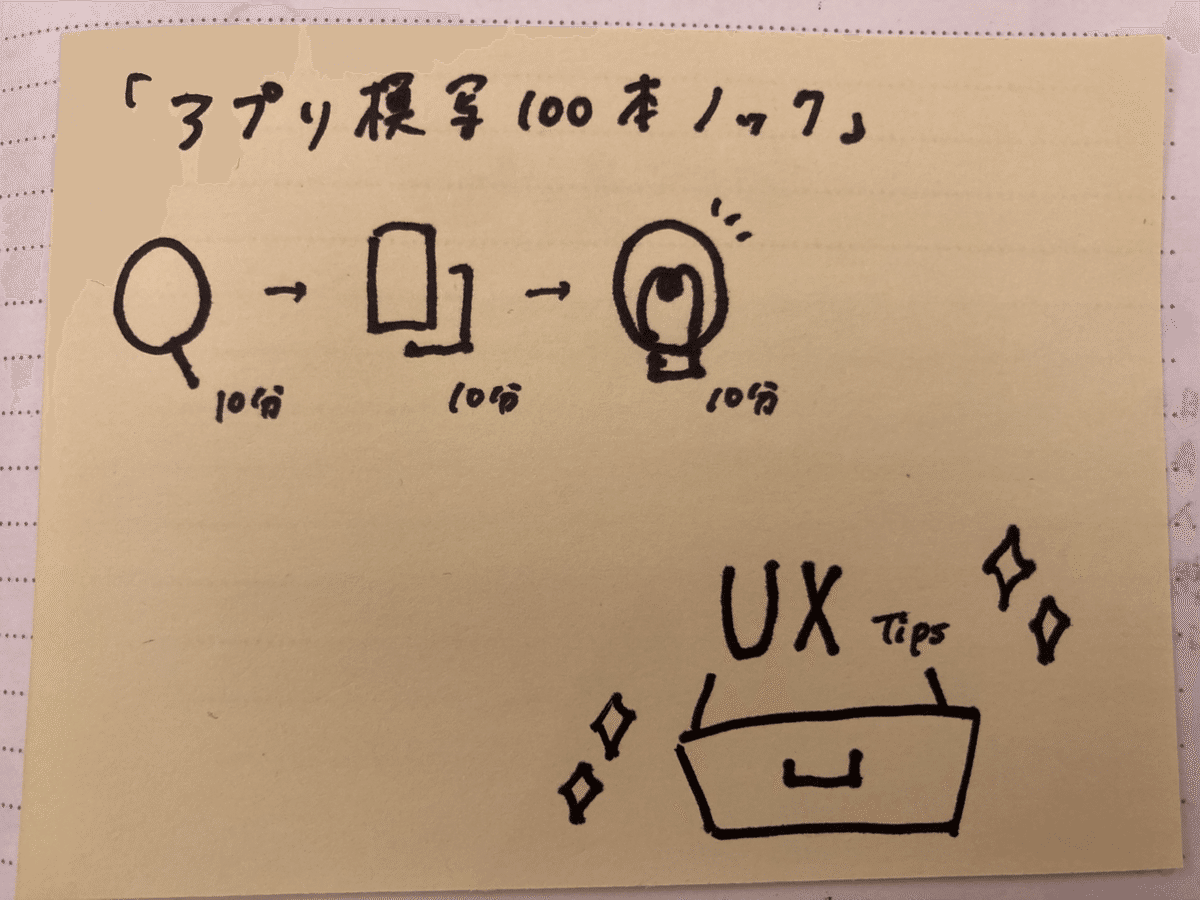 「アプリ模写100本ノック」
10分 10分 10分
UX Tips